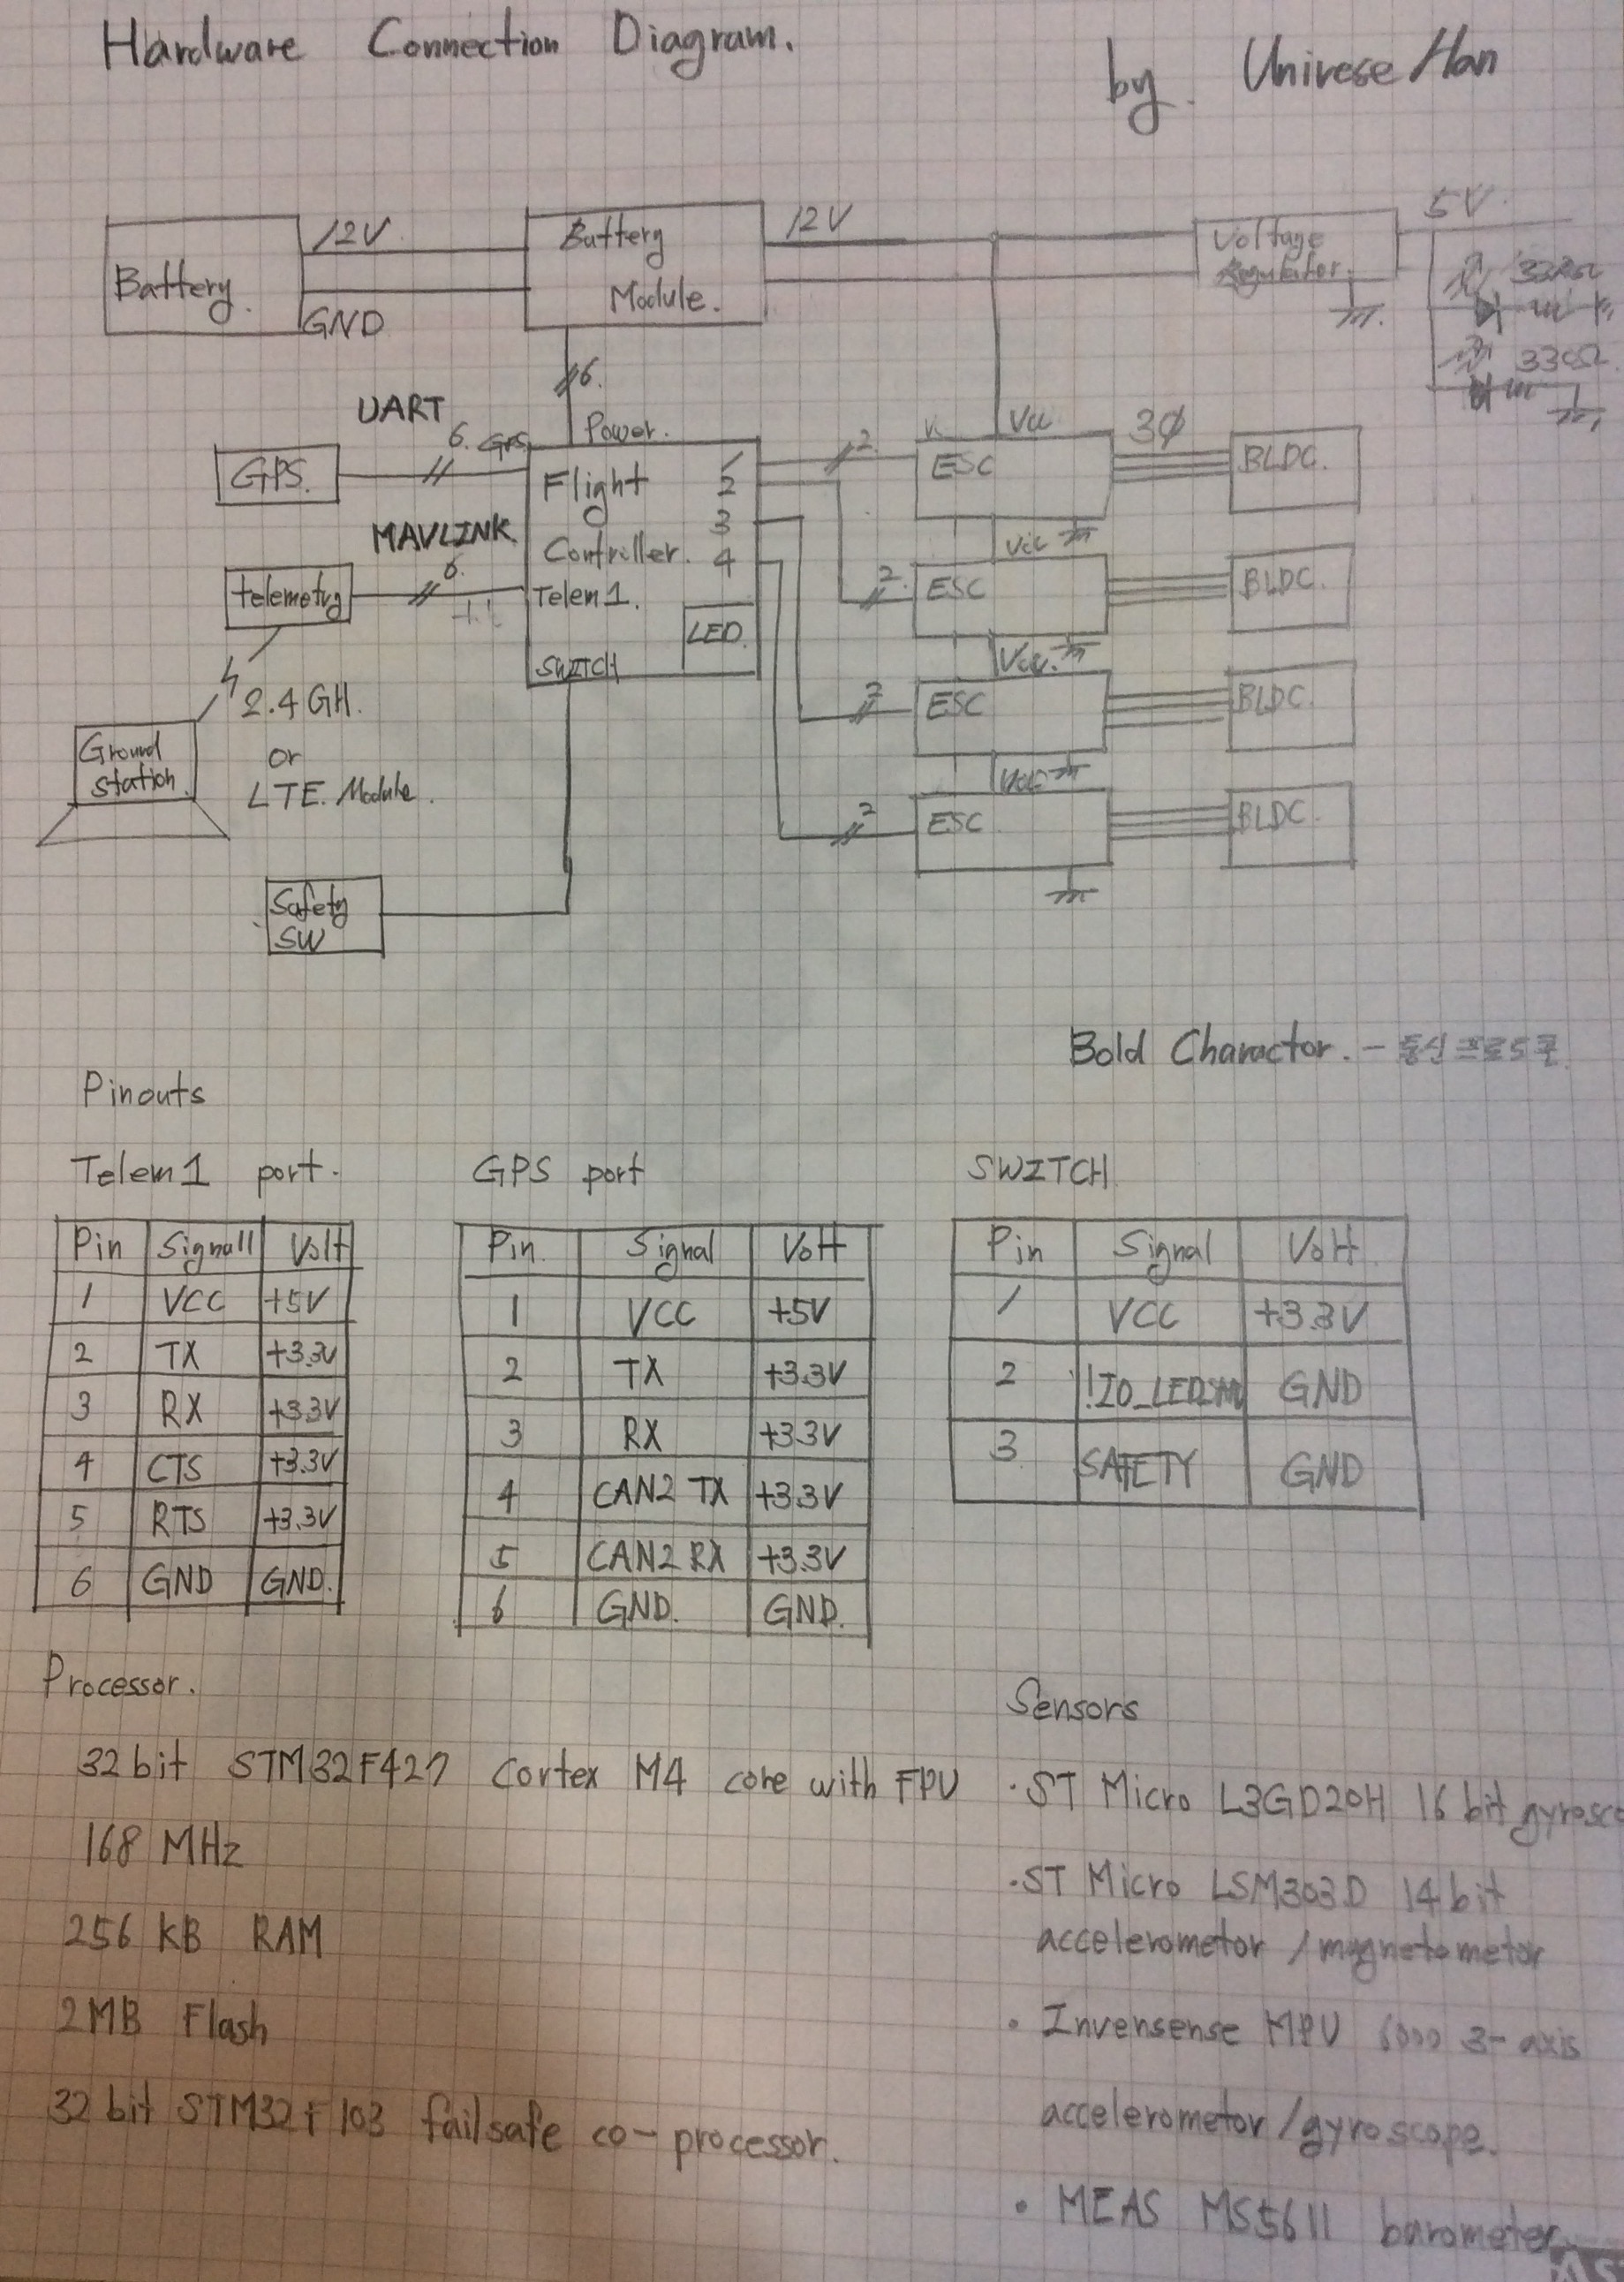 Hardware Connection Diagram.
by. Univese Han
Battery.
12V
GND
Battery
Module.
12V
Voltage
Regulator.
5V.
330Ω
330Ω
6.
UART
6. GPS
Power.
GPS.
Flight
Controller.
1
2
3
4
MAVLINK
6.
telemetry
Telem1.
LED
SWITCH
2.4GH.
or
LTE. Module.
Ground
station.
Safety
SW
2
Vcc
ESC
3Ø
BLDC.
2.
Vcc
ESC
BLDC.
2
Vcc.
ESC
BLDC.
2
Vcc
ESC
BLDC.
Bold Charactor. - 통신 프로토콜
Pinouts
Telem1 port.
Pin Signall Volt
1 VCC +5V
2 TX +3.3V
3 RX +3.3V
4 CTS +3.3V
5 RTS +3.3V
6 GND GND.
GPS port
Pin. Signal Volt
1 VCC +5V
2 TX +3.3V
3 RX +3.3V
4 CAN2 TX +3.3V
5 CAN2 RX +3.3V
6 GND. GND.
SWITCH
Pin Signal Volt
1 VCC +3.3V
2 GND
3 SAFETY GND
Processor.
32bit STM32F427 Cortex M4 core with FPU
168 MHz
256 KB RAM
2MB Flash
32bit STM32F103 failsafe co-processor.
Sensors
· ST Micro L3GD20H 16 bit gyrosco
· ST Micro LSM303D 14 bit
accelerometor / magnetometor
· Invensense MPU 6000 3-axis
accelerometor / gyroscope.
· MEAS MS5611 barometer